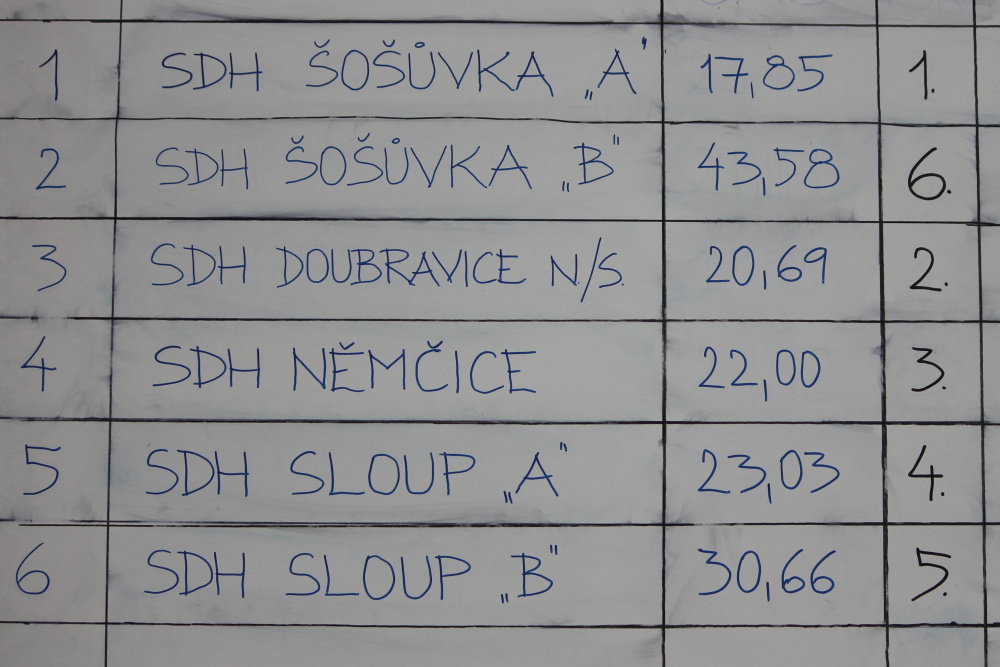 1 SDH ŠOŠŮVKA „A" 17,85 1.
2 SDH ŠOŠŮVKA „B" 43,58 6.
3 SDH DOUBRAVICE N/S. 20,69 2.
4 SDH NĚMČICE 22,00 3.
5 SDH SLOUP „A" 23,03 4.
6 SDH SLOUP „B" 30,66 5.